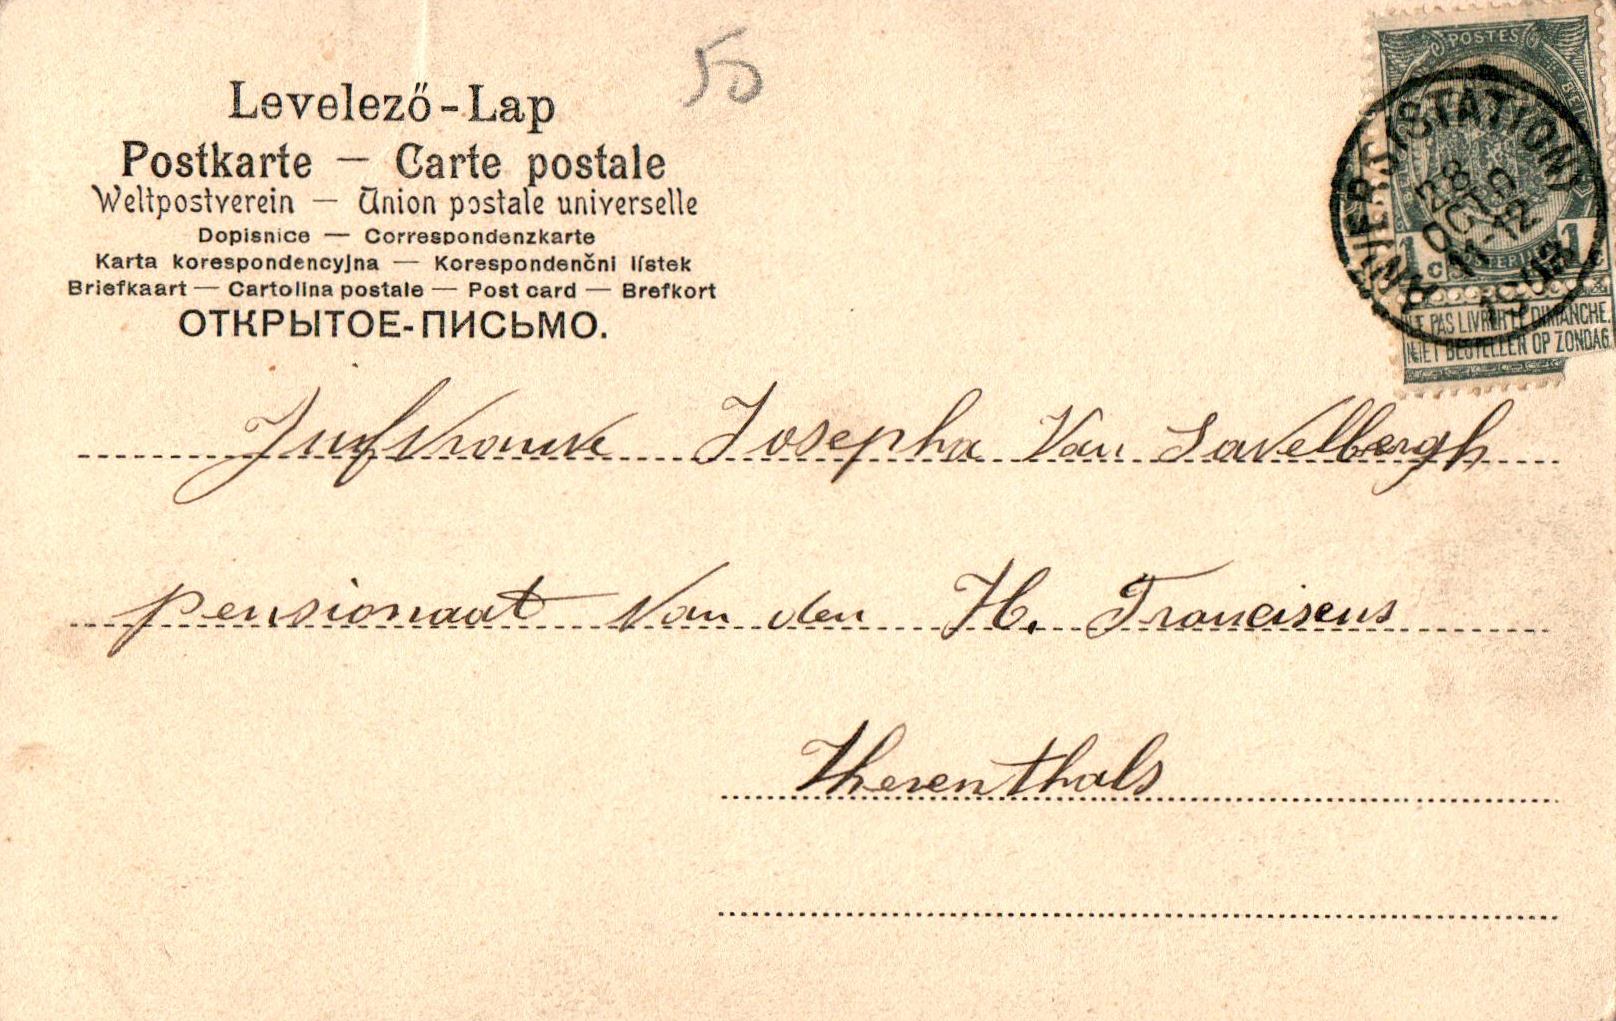 50
Levelező-Lap
Postkarte — Carte postale
Weltpostverein — Union postale universelle
Dopisnice — Correspondenzkarte
Karta korespondencyjna — Korespondenčni lístek
Briefkaart — Cartolina postale — Post card — Brefkort
ОТКРЫТОЕ-ПИСЬМО.
POSTES
(STATION)
28
OCTO
11-12
1 C 1 C
NE PAS LIVRER LE DIMANCHE.
NIET BESTELLEN OP ZONDAG.
Jufvrouw Josepha Van Savelbergh
pensionaat Van den H. Franciscus
Herenthals